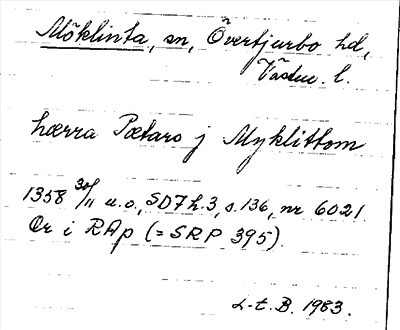 Möklinta, sn, Övertjurbo hd,
Västm. l.
hærra Pætars j Myklittom
1358 30/11 u.o., SD7 h.3, s.136, nr 6021.
Or i RAp (= SRP 395).
L-t. B. 1983.